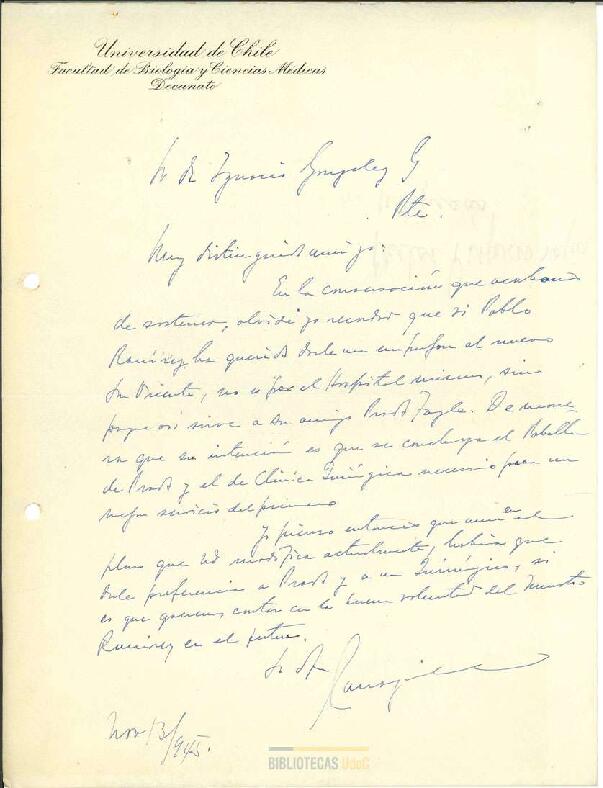 Universidad de Chile
Facultad de Biología y Ciencias Medicas
Decanato
Sr Dr Ignacio Gonzalez G
Pte.
Muy distinguido amigo:
En la conversación que acabamos
de sostener, olvidé yo recordar que si Pablo
Ramírez ha querido darle un empujon al nuevo
Sn Vicente, no es por el Hospital mismo, sino
porque así sirve a su amigo Prado Tagle. De mane-
ra que su intención es que se concluya el Pabellon
de Prado y el de Clínica Quirúrgica necesario para un
mejor servicio del primero
Yo pienso entonces que aun en el
plan que Ud modifica actualmente, habria que
darle preferencia a Prado y a un Quirúrgico, si
es que queremos contar con la buena voluntad del Ministro
Ramirez en el futuro.
Nov 13/945.
BIBLIOTECAS UdeC